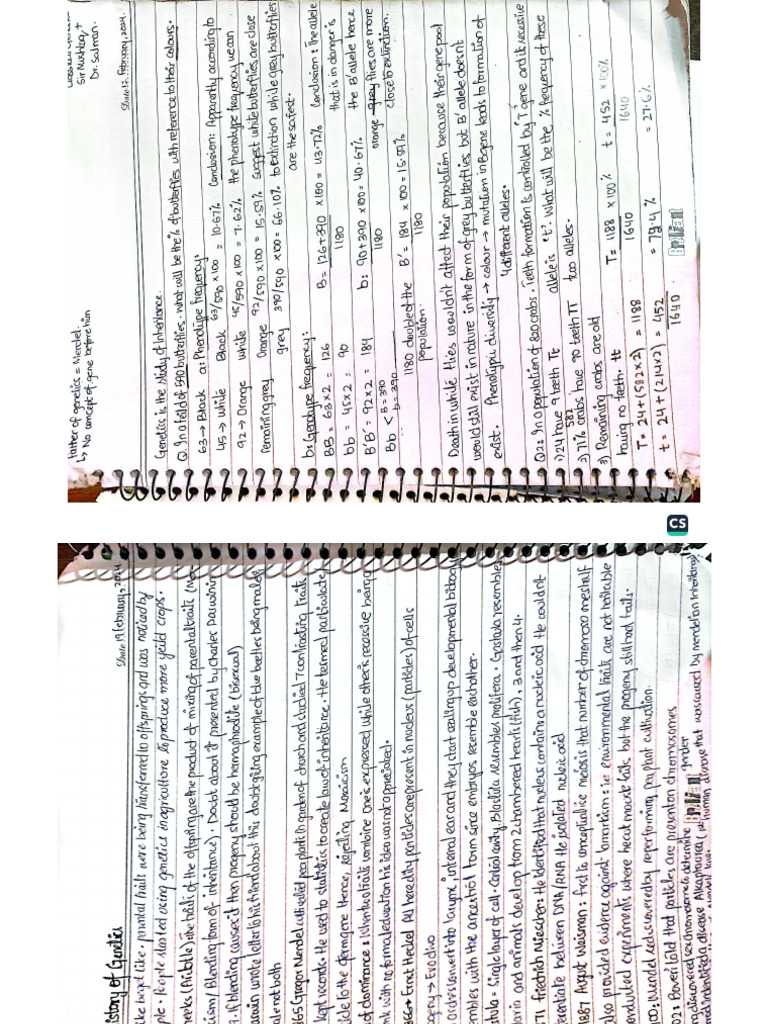 Sir Mushtaq +
Dr. Salman.
Date: 12 February, 2024
Father of genetics = Mendel
↳ No concept of gene before him
Genetics is the study of Inheritance.
Q. In a field of 590 butterflies. What will be the % of butterflies with reference to their colours.
63 → Black a: Phenotype frequency:
45 → White Black 63/590 x 100 = 10.67% Conclusion: Apparently according to
92 → Orange white 45/590 x 100 = 7.62% the phenotype frequency we can
Remaining grey Orange 92/590 x 100 = 15.59% suggest white butterflies are close
grey 390/590 x 100 = 66.10% to extinction while grey butterflies
are the safest.
b: Genotype frequency:
BB = 63 x 2 = 126 B = 126+390 x 100 = 43.72% Conclusion: The allele
1180 that is in danger is
bb = 45 x 2 = 90 b: 90+390 x 100 = 40.67% the B' allele hence
1180 orange flies are more
B'B' = 92 x 2 = 184 B' = 184 x 100 = 15.59% close to extinction.
1180
Bb < B = 390
b = 390
1180 doubled of the
population.
Death in white flies wouldn't affect their population because their gene pool
would still exist in nature in the form of grey butterflies but B' allele doesn't
exist. Phenotypic diversity → colour → mutation in B gene leads to formation of
4 different alleles.
Q02: In a population of 820 crabs. Teeth formation is controlled by 'T' gene and it recessive
1) 24 have 9 teeth Tt allele is 't'. What will be the % frequency of these
582
2) 71% crabs have 70 teeth TT two alleles.
3) Remaining crabs are old
having no teeth. tt
T = 1188 x 100% t = 452 x 100%
1640 1640
T = 24 + (582x2) = 1188
= 72.4% = 27.6%
t = 24 + (214x2) = 452
1640.
CS
Date: 19 February, 2024
History of Genetics
parental traits were being transferred to offsprings and was noticed by
People started using genetics in agriculture to produce more yield crops.
the traits of the offspring are the product of mixing of parental traits
Blending form of inheritance). Doubt about it presented by Charles Darwin in
If blending causes it then progeny should be hermaphrodite (bisexual)
wrote letter to his friend about this doubt giving example of blue beetles being male
not both
Gregor Mendel cultivated pea plants in garden of church and studied 7 contrasting traits
kept records. He used to statistics to create law of inheritance. He termed particulate
Hence, rejecting Mosaicism
of dominance: When two traits combine one is expressed while other is recessive being
with no formal education his idea was not appreciated.
Ernst Heckel All heredity particles are present in nucleus (particles) of cells
→ Evo divo
convert into larynx, internal ear and they start scaling up developmental biology
with the ancestral form since embryos resemble each other.
Single layer of cell. Central cavity. Blastula resembles porifera. Gastrula resembles
and animals develop from 2 chambered hearts (fish), 3 and then 4.
Friedrich Miescher: He identified that nucleus contains a nucleic acid He couldn't
between DNA/RNA He isolated nucleic acid
1887 August Weisman: First to conceptualise meiosis that number of chromosomes half
also provided evidence against Lamarckism: ie environmental traits are not heritable
conducted experiments where he cut mouse tails but the progeny still had tails.
Mendel rediscovered by reperforming pea plant cultivation.
Boveri told that particles are present on chromosomes
discovered sex chromosomes to determine gender
identified a disease Alkaptonurea, human disease that was caused by mendelian inheritance